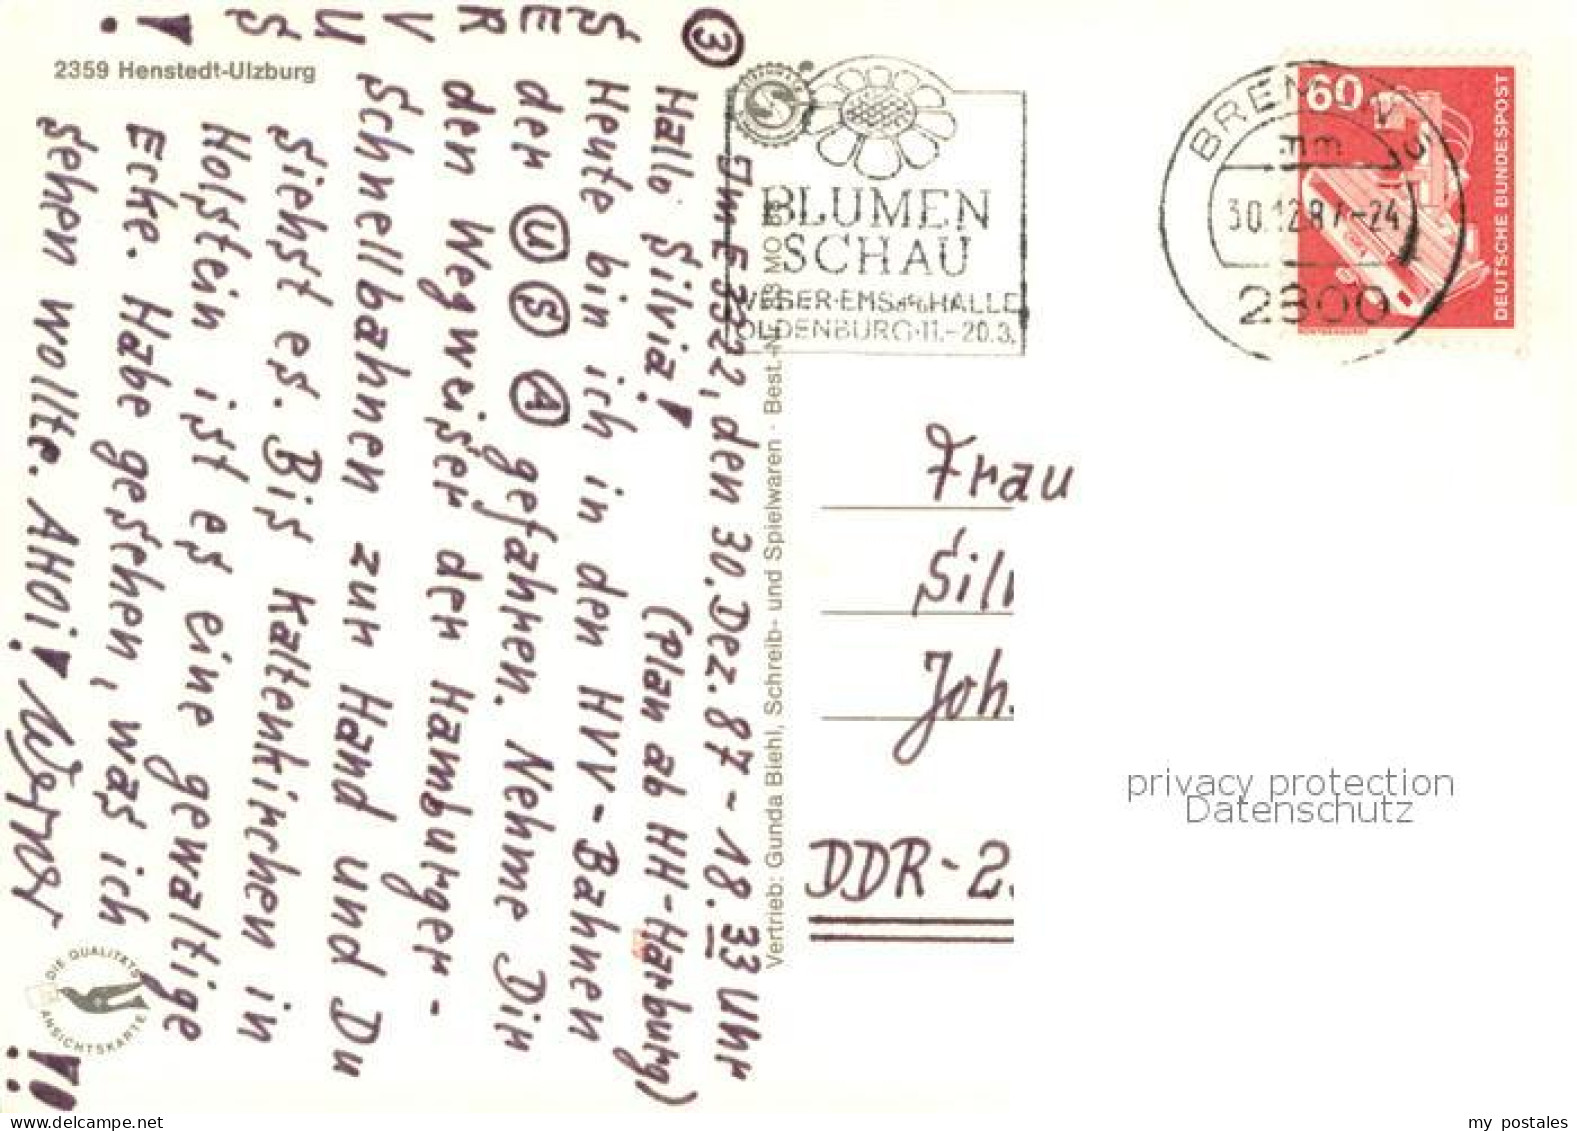 2359 Henstedt-Ulzburg
③ SERVUS!
Im E 3522, den 30. Dez. 87 - 18.33 Uhr
Hallo Silvia! (Plan ab HH-Harburg)
Heute bin ich in den HVV-Bahnen
der Ⓤ Ⓢ Ⓐ gefahren. Nehme Dir
den Wegweiser der Hamburger-
Schnellbahnen zur Hand und Du
siehst es. Bis Kaltenkirchen in
Holstein ist es eine gewaltige
Ecke. Habe gesehen, was ich
sehen wollte. AHOI! Werner
!!
DIE QUALITÄTS
ANSICHTSKARTE
Vertrieb: Gunda Biehl, Schreib- und Spielwaren · Best.-N
BLUMEN
SCHAU
WESER-EMS-HALLE
OLDENBURG·11.-20.3.
BREMEN 5
mm
30.12.87-24
2800
60
DEUTSCHE BUNDESPOST
Frau
Sil
Joh.
DDR-2.
privacy protection
Datenschutz
my postales